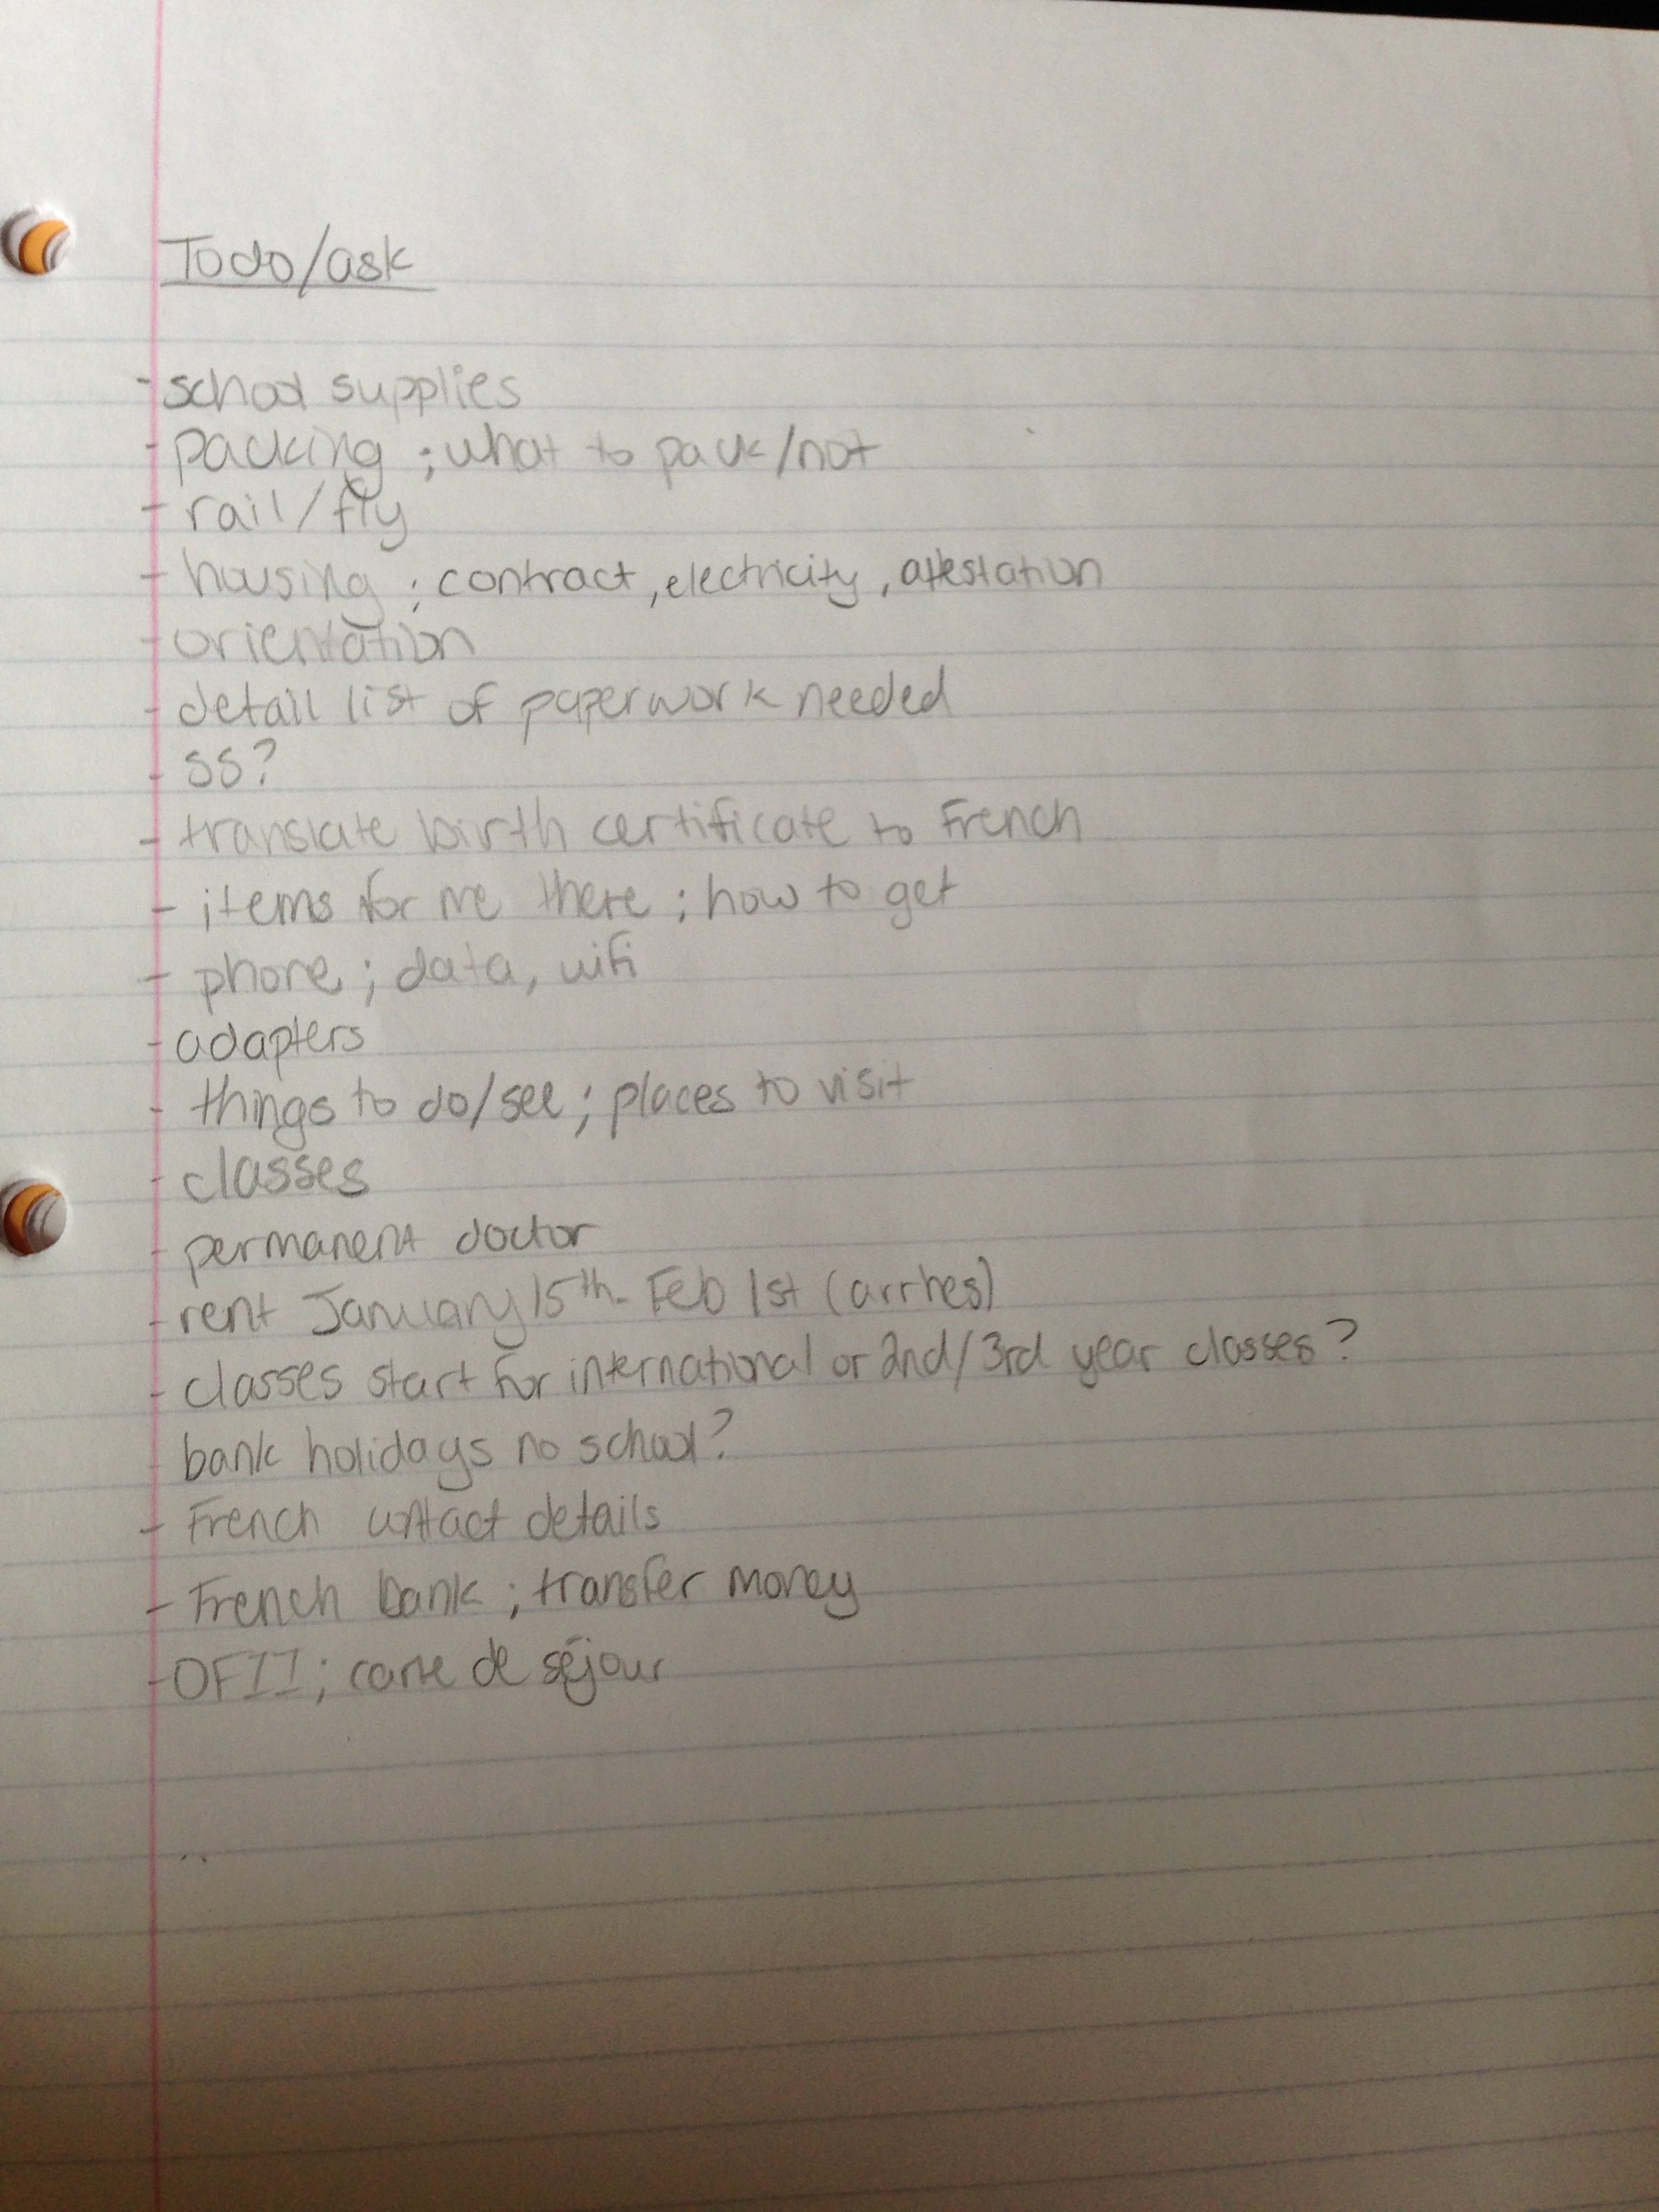 Todo/ask
- school supplies
- packing ; what to pack/not
- rail/fly
- housing ; contract, electricity, attestation
- orientation
- detail list of paperwork needed
- SS?
- translate birth certificate to French
- items for me there ; how to get
- phone ; data, wifi
- adapters
- things to do/see ; places to visit
- classes
- permanent doctor
- rent January 15th - Feb 1st (arrhes)
- classes start for international or 2nd/3rd year classes?
bank holidays no school?
- French contact details
- French bank ; transfer money
- OFII ; carte de séjour